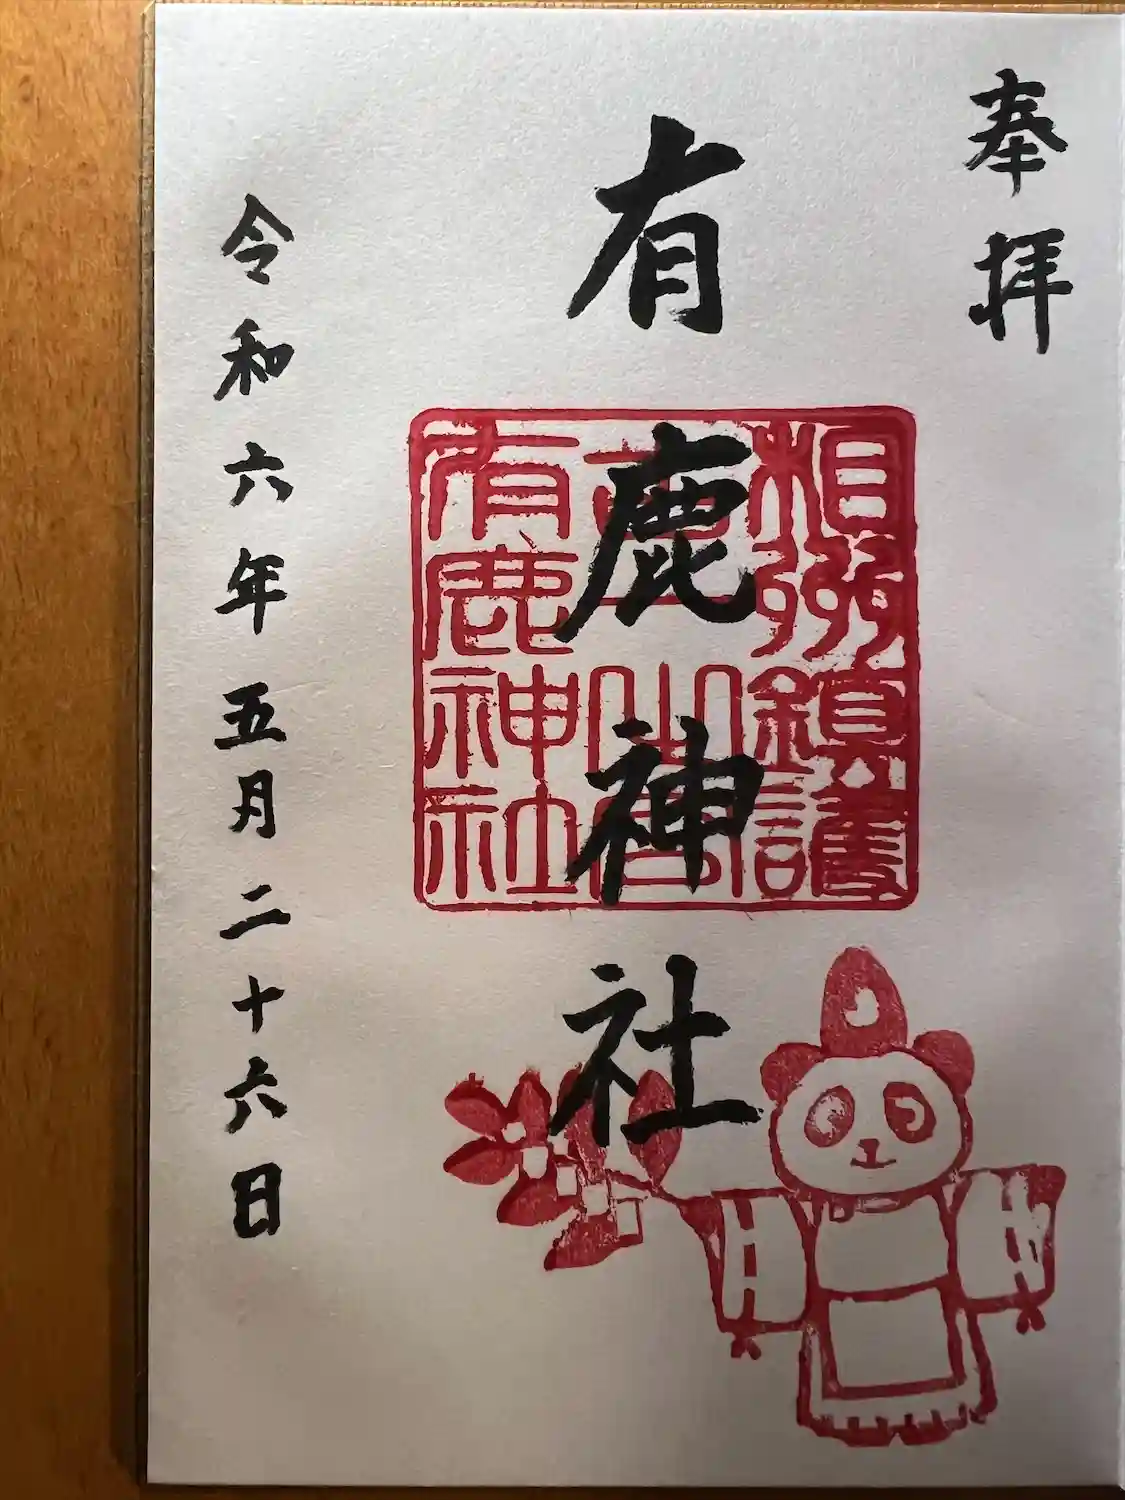 奉拝
有鹿神社
相州鎮護
有鹿神社
令和六年五月二十六日